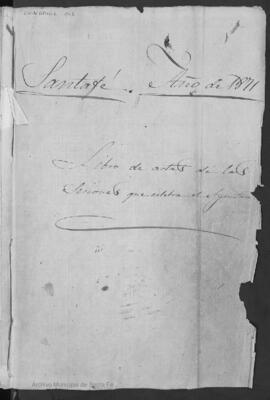 Santafé. Año de 1871
Libro de actas de las
Sesiones que celebra el
Archivo Municipal de Santa Fe